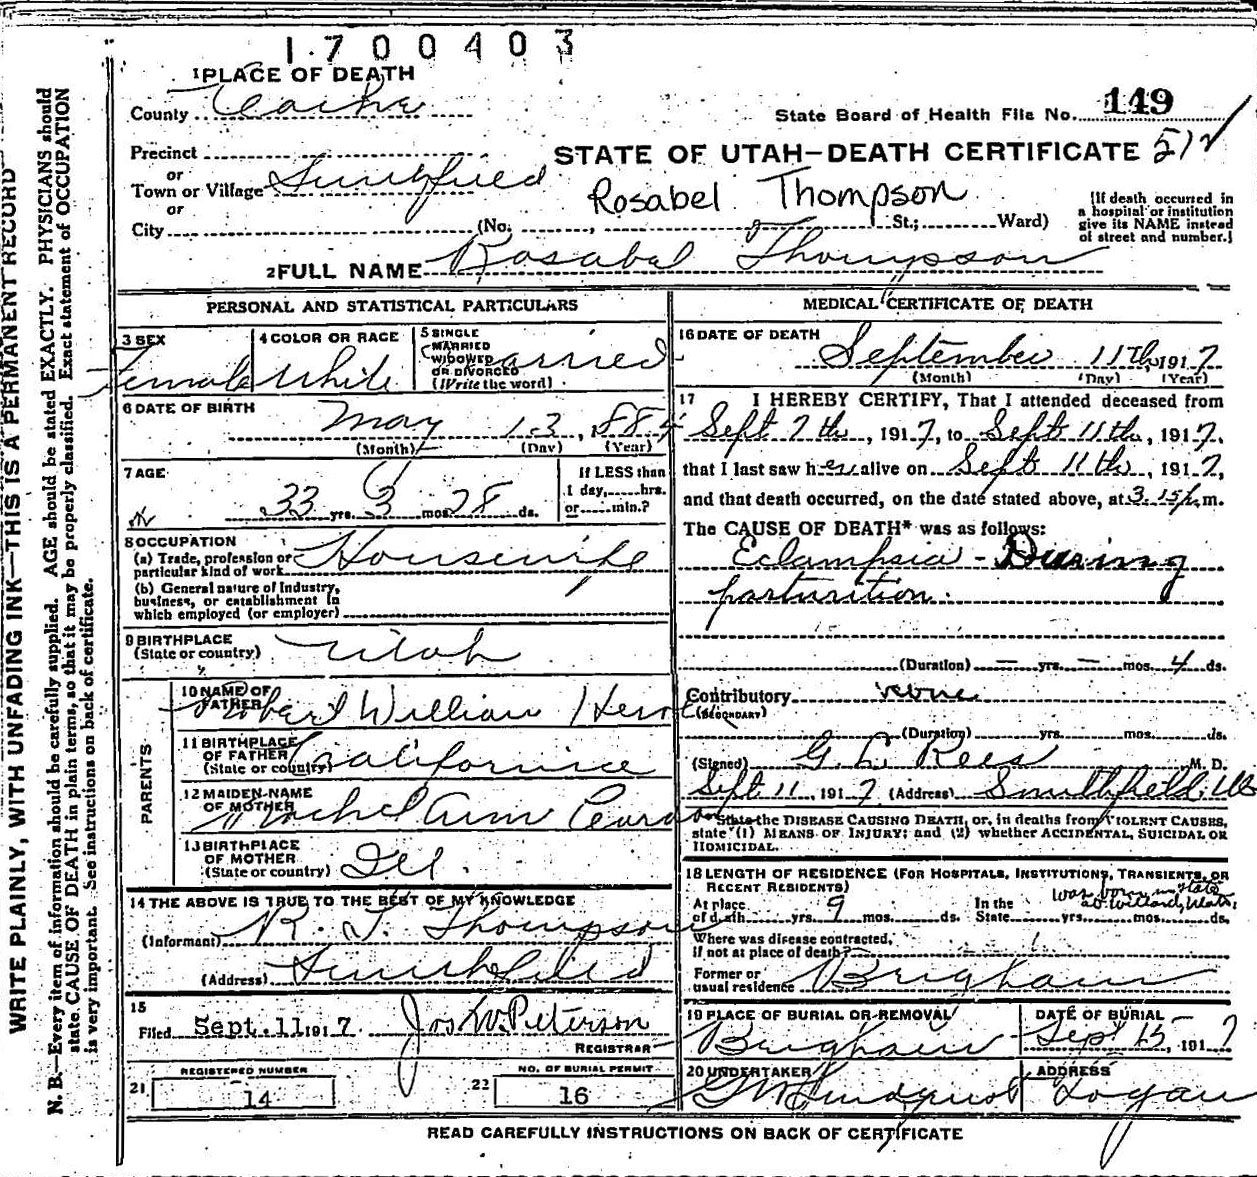 1700403
1 PLACE OF DEATH
County Cache
State Board of Health File No. 149
Precinct
or
Town or Village Smithfield
or
City
STATE OF UTAH—DEATH CERTIFICATE 512
Rosabel Thompson
(No. , St.; Ward)
(If death occurred in
a hospital or institution
give its NAME instead
of street and number.)
2 FULL NAME Rosabel Thompson
PERSONAL AND STATISTICAL PARTICULARS
3 SEX
Female
4 COLOR OR RACE
White
5 SINGLE
MARRIED
WIDOWED
OR DIVORCED
(Write the word)
Married
6 DATE OF BIRTH
May 13, 1884
(Month) (Day) (Year)
7 AGE
33 yrs. 3 mos. 28 ds.
If LESS than
1 day, hrs.
or min.?
8 OCCUPATION
(a) Trade, profession or
particular kind of work Housewife
(b) General nature of Industry,
business, or establishment in
which employed (or employer)
9 BIRTHPLACE
(State or country) Utah
PARENTS
10 NAME OF
FATHER Robert William
11 BIRTHPLACE
OF FATHER
(State or country) California
12 MAIDEN NAME
OF MOTHER Rachel Ann
13 BIRTHPLACE
OF MOTHER
(State or country) Ill.
14 THE ABOVE IS TRUE TO THE BEST OF MY KNOWLEDGE
(Informant) R. T. Thompson
(Address) Smithfield
15
Filed Sept. 11 1917. Jos W. Peterson
REGISTRAR
21 REGISTERED NUMBER
14
22 NO. OF BURIAL PERMIT
16
MEDICAL CERTIFICATE OF DEATH
16 DATE OF DEATH
September 11th, 1917
(Month) (Day) (Year)
17 I HEREBY CERTIFY, That I attended deceased from
Sept 7th, 1917, to Sept 11th, 1917,
that I last saw her alive on Sept 11th, 1917,
and that death occurred, on the date stated above, at 3.15 p.m.
The CAUSE OF DEATH* was as follows:
Eclampsia - During
parturition.
(Duration) — yrs. — mos. 4 ds.
Contributory none
(SECONDARY)
(Duration) yrs. mos. ds.
(Signed) G. L. Rees M. D.
Sept 11, 1917 (Address) Smithfield, Ut
*State the DISEASE CAUSING DEATH, or, in deaths from VIOLENT CAUSES,
state (1) MEANS OF INJURY; and (2) whether ACCIDENTAL, SUICIDAL OR
HOMICIDAL.
18 LENGTH OF RESIDENCE (FOR HOSPITALS, INSTITUTIONS, TRANSIENTS, OR
RECENT RESIDENTS)
was born in state
at Willard, Utah.
At place
of death yrs. 9 mos. ds.
In the
State yrs. mos. ds.
Where was disease contracted,
if not at place of death?
Former or
usual residence Brigham
19 PLACE OF BURIAL OR REMOVAL
Brigham
DATE OF BURIAL
Sept 15, 1917
20 UNDERTAKER
Lindquist
ADDRESS
Logan
READ CAREFULLY INSTRUCTIONS ON BACK OF CERTIFICATE
WRITE PLAINLY, WITH UNFADING INK—THIS IS A PERMANENT RECORD
N. B.—Every item of information should be carefully supplied. AGE should be stated EXACTLY. PHYSICIANS should
state CAUSE OF DEATH in plain terms, so that it may be properly classified. Exact statement of OCCUPATION
is very important. See instructions on back of certificate.